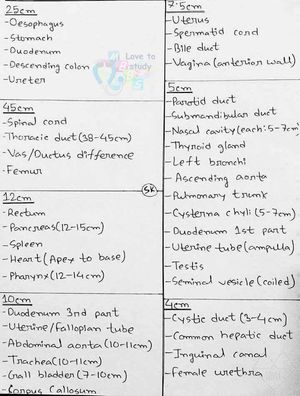 25cm
-Oesophagus
-Stomach
-Duodenum
-Descending colon
-Ureter
Love to
study
45cm
-Spinal cord
-Thoracic duct(38-45cm)
-Vas/Ductus difference
-Femur
12cm
-Rectum
-Pancreas(12-15cm)
-Spleen
-Heart(Apex to base)
-Pharynx(12-14cm)
10cm
-Duodenum 3rd part
-Uterine/Fallopian tube
-Abdominal aorta(10-11cm)
-Trachea(10-11cm)
-Gall bladder(7-10cm)
-Corpus Callosum
SK
7.5cm
-Uterus
-Spermatid cord
-Bile duct
-Vagina(anterior wall)
5cm
-Parotid duct
-Submandibular duct
-Nasal cavity(each:5-7cm)
-Thyroid gland
-Left bronchi
-Ascending aorta
-Pulmonary trunk
-Cysterna chyli(5-7cm)
-Duodenum 1st part
-Uterine tube(ampulla)
-Testis
-Seminal vesicle(coiled)
4cm
-Cystic duct(3-4cm)
-Common hepatic duct
-Inguinal canal
-Female urethra